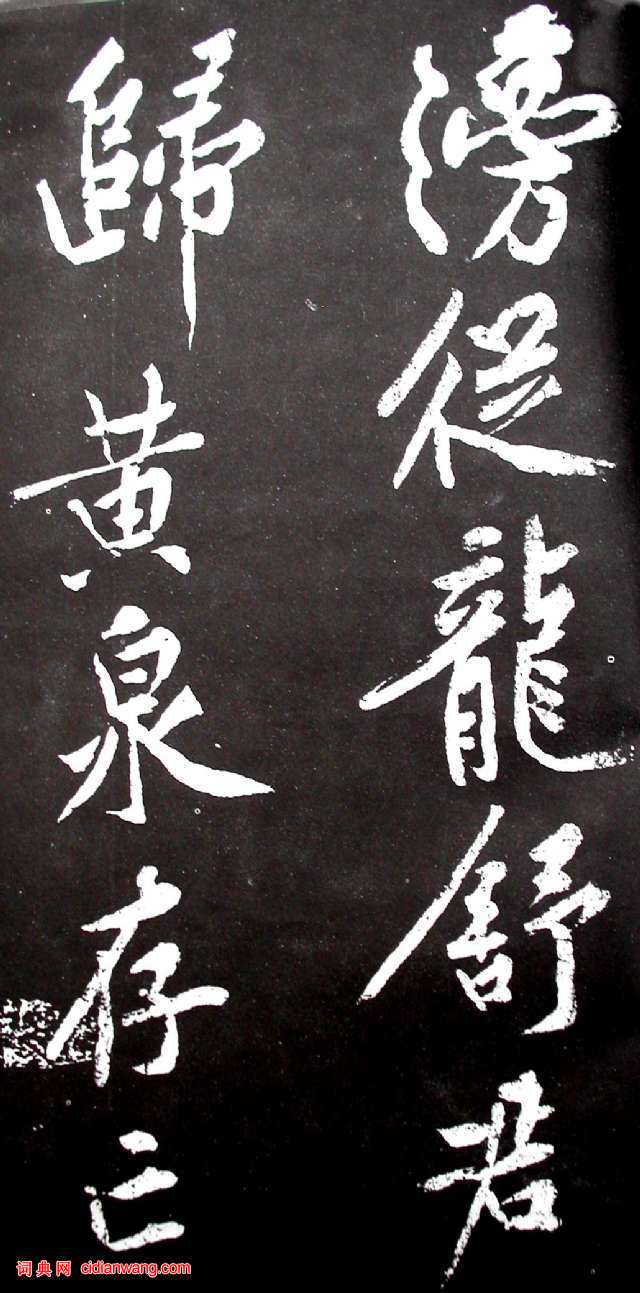 滂從龍舒若
歸黄泉存亡
词典网 cidianwang.com